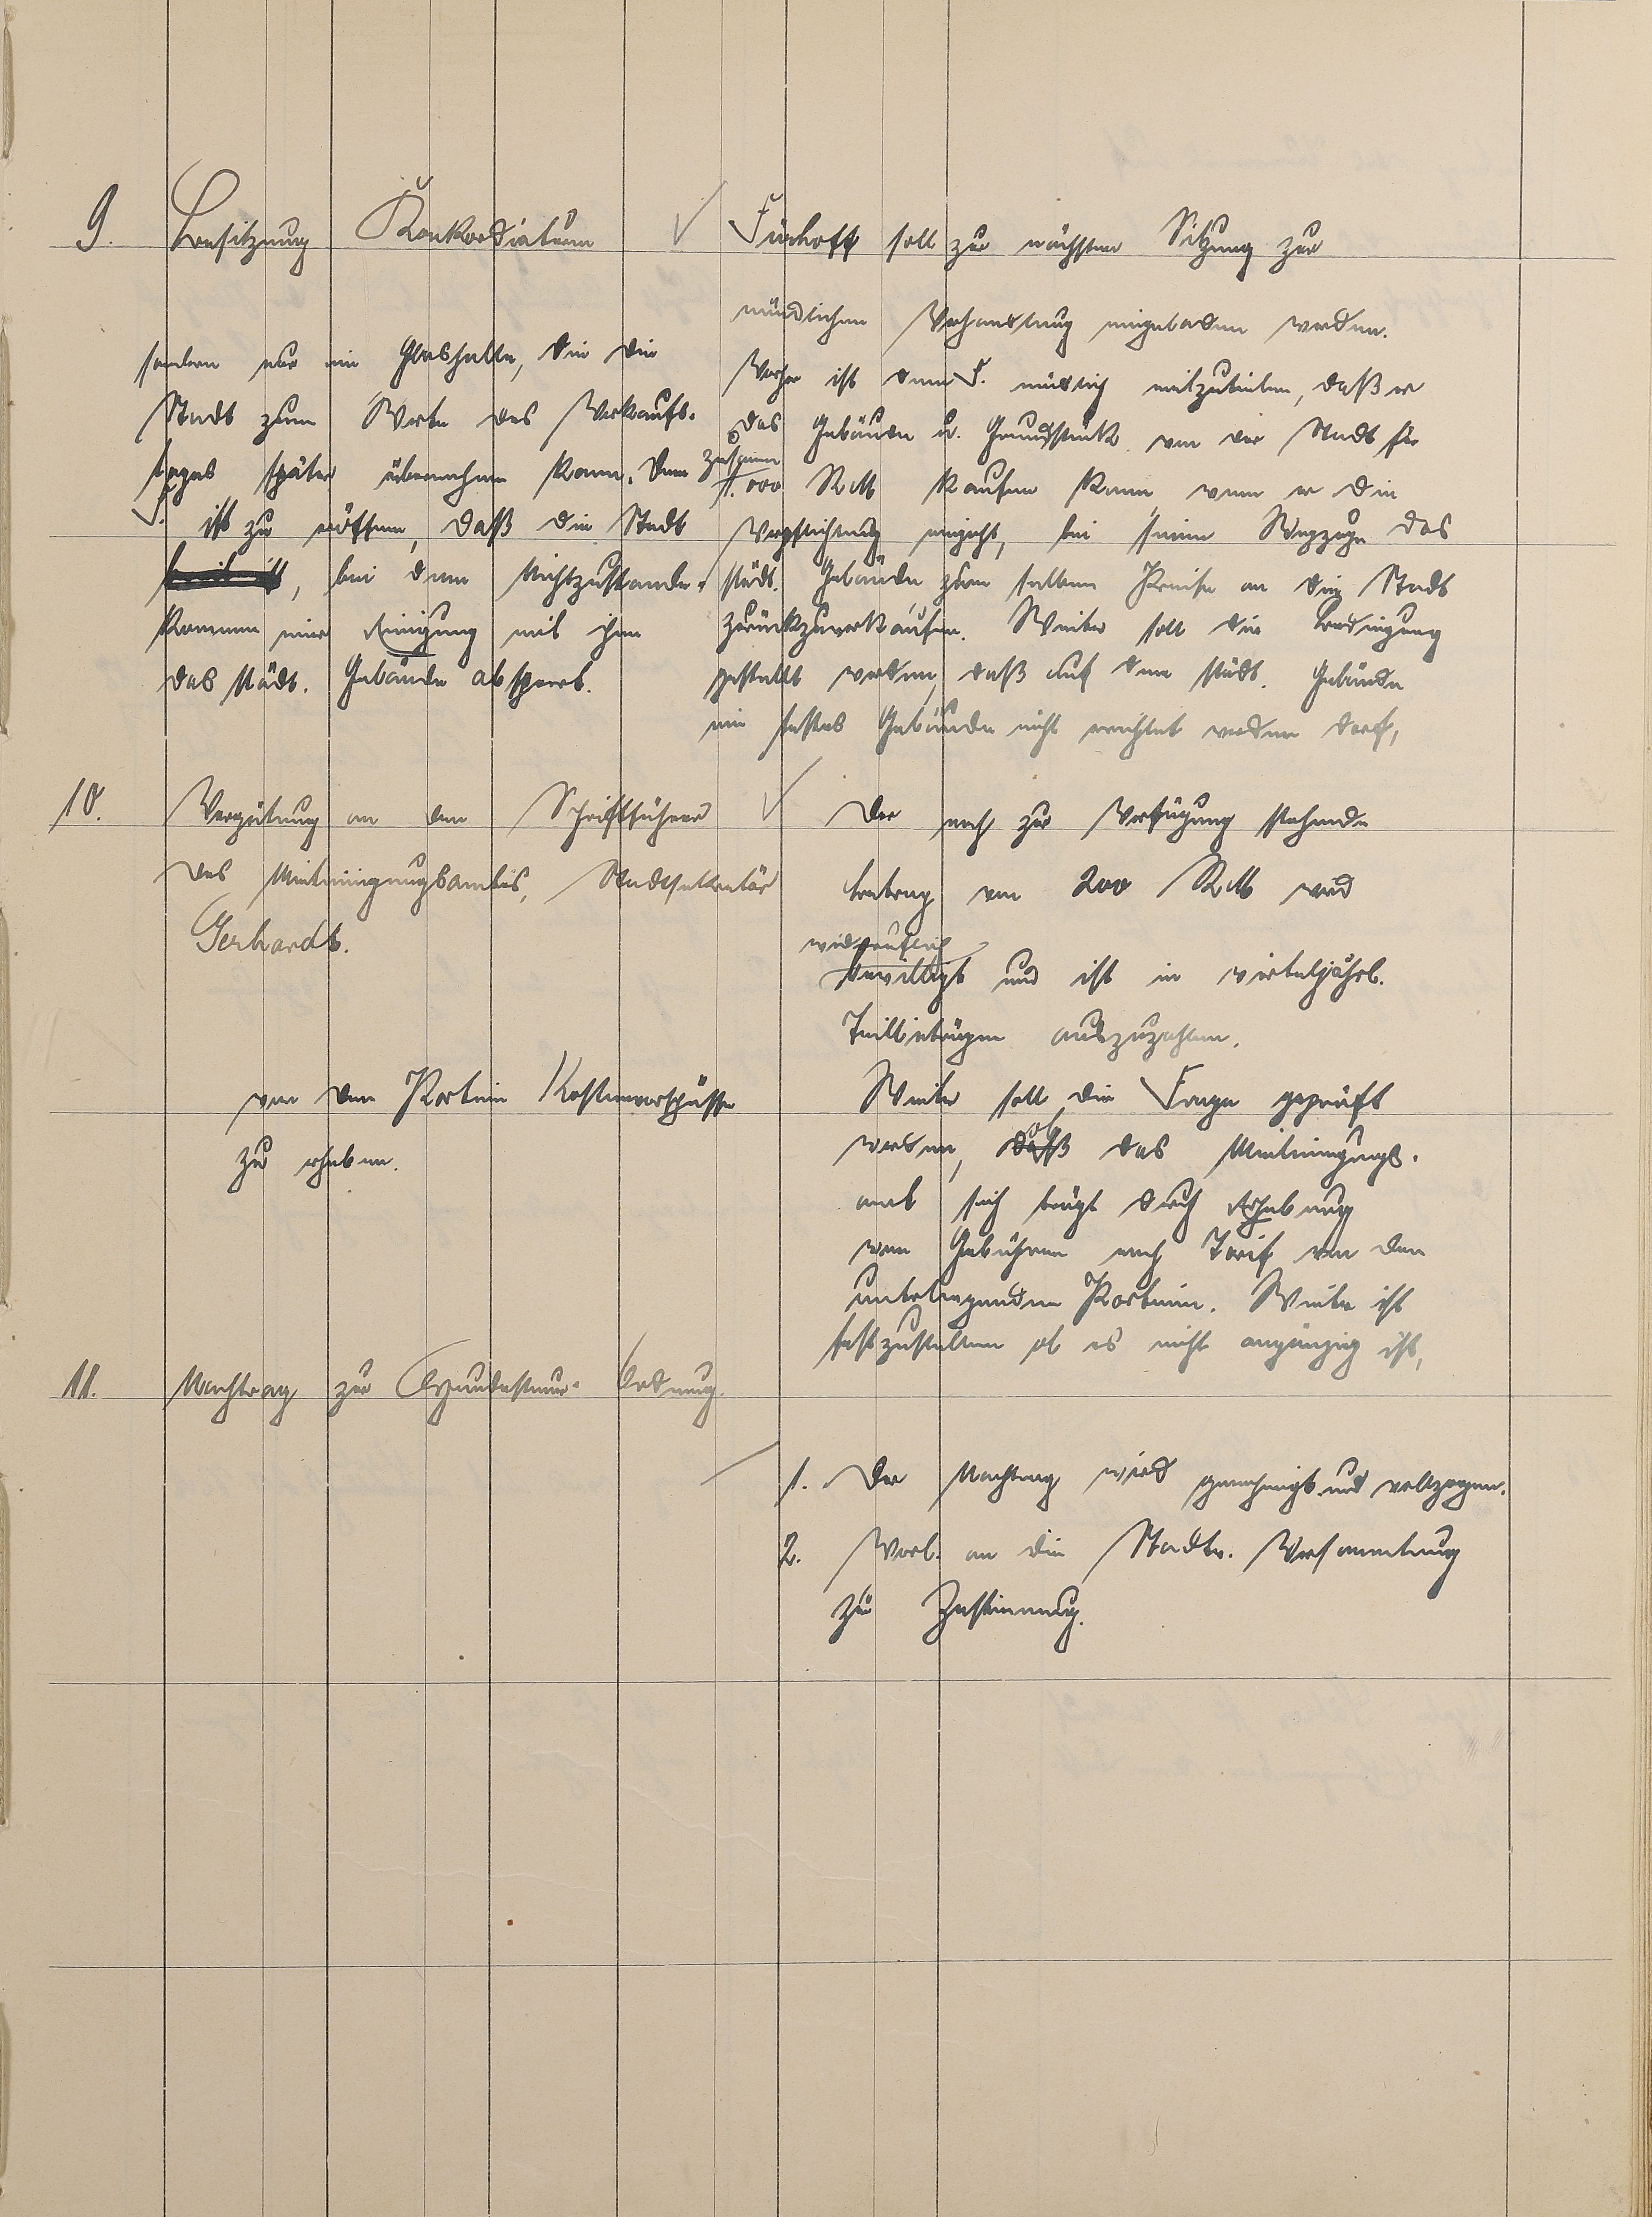 9. Besitzung Konkordiaturm
✓ Fürhoff soll zur nächsten Sitzung zur
mündlichen Verhandlung eingeladen werden.
Vorher ist dem F. mitzuteilen, daß er
das Gebäude u. Grundstück von der Stadt für
zusammen
1.000 RM kaufen kann, wenn er die
Verpflichtung eingeht, bei seinem Wegzuge das
städt. Gebäude zum selben Preise an die Stadt
zurückzuverkaufen. Weiter soll die Bedingung
gestellt werden, daß auf dem städt. Gebäude
ein festes Gebäude nicht errichtet werden darf,
sondern nur eine Glashalle, die die
Stadt zum Werte des Verkaufs-
tages später übernehmen kann. Dem
F. ist zu eröffnen, daß die Stadt
, bei dem Nichtzustande-
kommen einer Einigung mit ihm
das städt. Gebäude absperrt.
10. Vergütung an den Schriftführer
des Mieteinigungsamtes, Stadtsekretär
Gerhardt.
✓ Der noch zur Verfügung stehende
Betrag von 200 RM wird
widerruflich
bewilligt und ist in vierteljährl.
Teilbeträgen auszuzahlen.
Weiter soll die Frage geprüft
werden, ob daß das Mieteinigungs-
amt sich trägt durch Erhebung
von Gebühren nach Tarif von den
unterliegenden Parteien. Weiter ist
festzustellen ob es nicht angängig ist,
von den Parteien Kostenvorschüsse
zu erheben.
11. Nachtrag zur Hundesteuer-Ordnung.
1. Der Nachtrag wird genehmigt und vollzogen.
2. Vorl. an die Stadtv. Versammlung
zur Zustimmung.